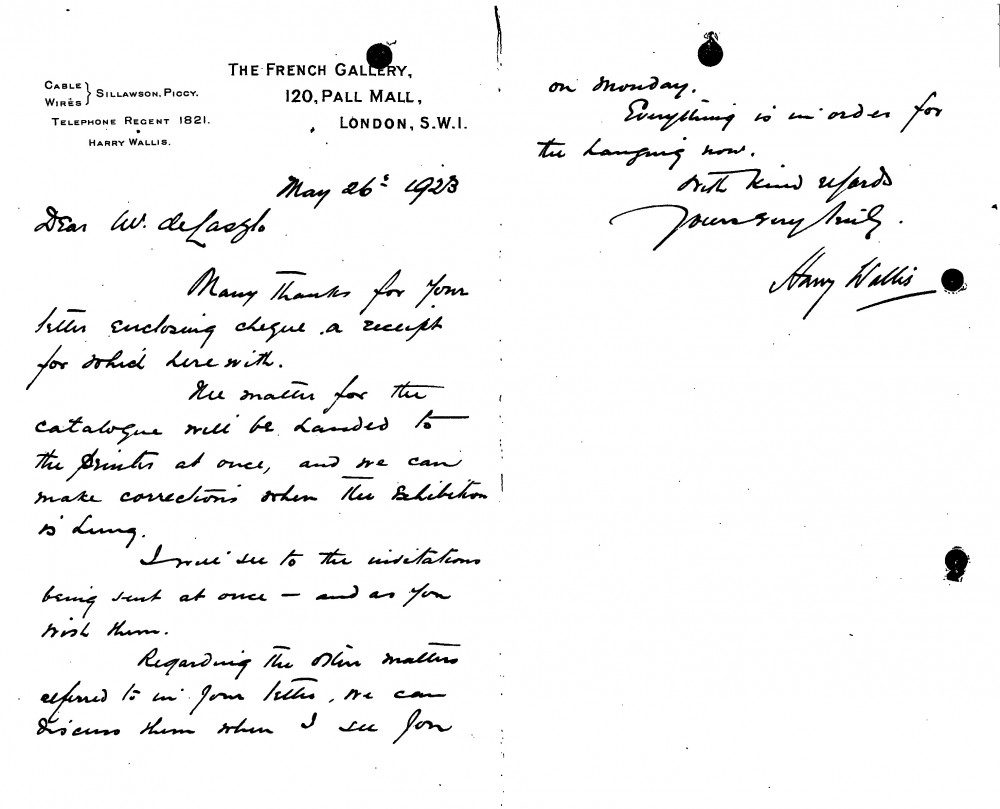 THE FRENCH GALLERY,
120, PALL MALL,
LONDON, S.W.1.
CABLE
WIRES } SILLAWSON, PICCY.
TELEPHONE REGENT 1821.
HARRY WALLIS.
May 26th 1923
Dear Mr. de Laszlo
Many thanks for your
letter enclosing cheque, a receipt
for which herewith.
The matter for the
catalogue will be handed to
the printer at once, and we can
make corrections when the Exhibition
is hung.
I will see to the invitations
being sent at once – and as you
wish them.
Regarding the other matters
referred to in your letter, we can
discuss them when I see you
on Monday.
Everything is in order for
the hanging now.
With kind regards
Yours very truly.
Harry Wallis